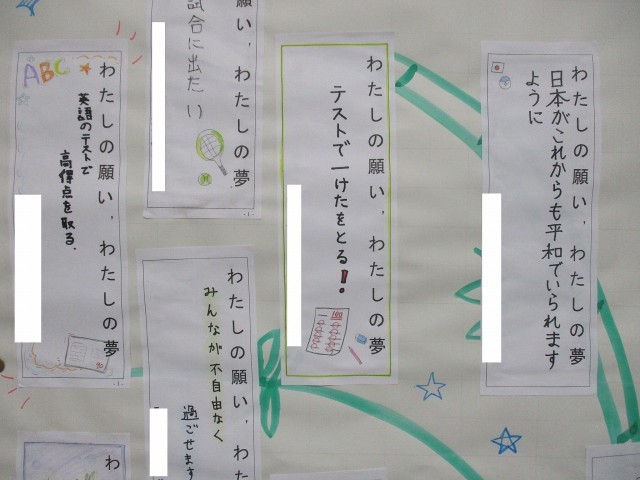 わたしの願い、わたしの夢
日本がこれからも平和でいられます
ように
わたしの願い、わたしの夢
テストで一けたをとる!。
100
願い、わたしの夢
試合に出たい
- 1 -
わたしの願い、わた
みんなが不自由なく
過ごせます
わたしの願い、わたしの夢
ABC
英語のテストで
高得点を取る.
90
- 1 -
わ